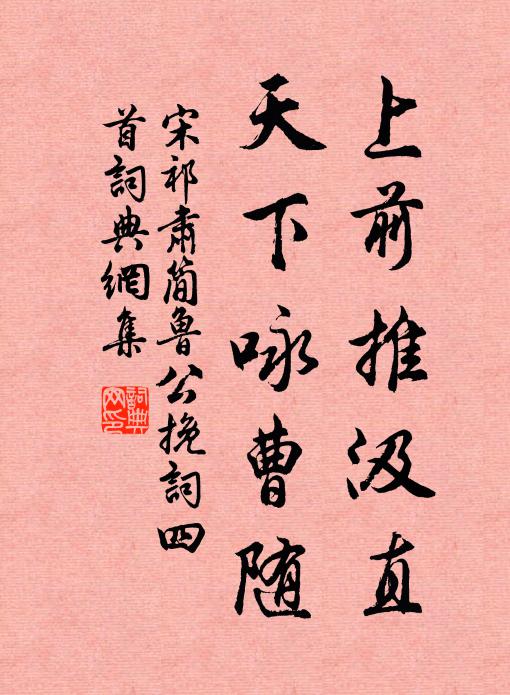 上前推汲直
天下咏曹随
宋祁肃簡魯公挽詞四
首詞典網集
詞典
网印